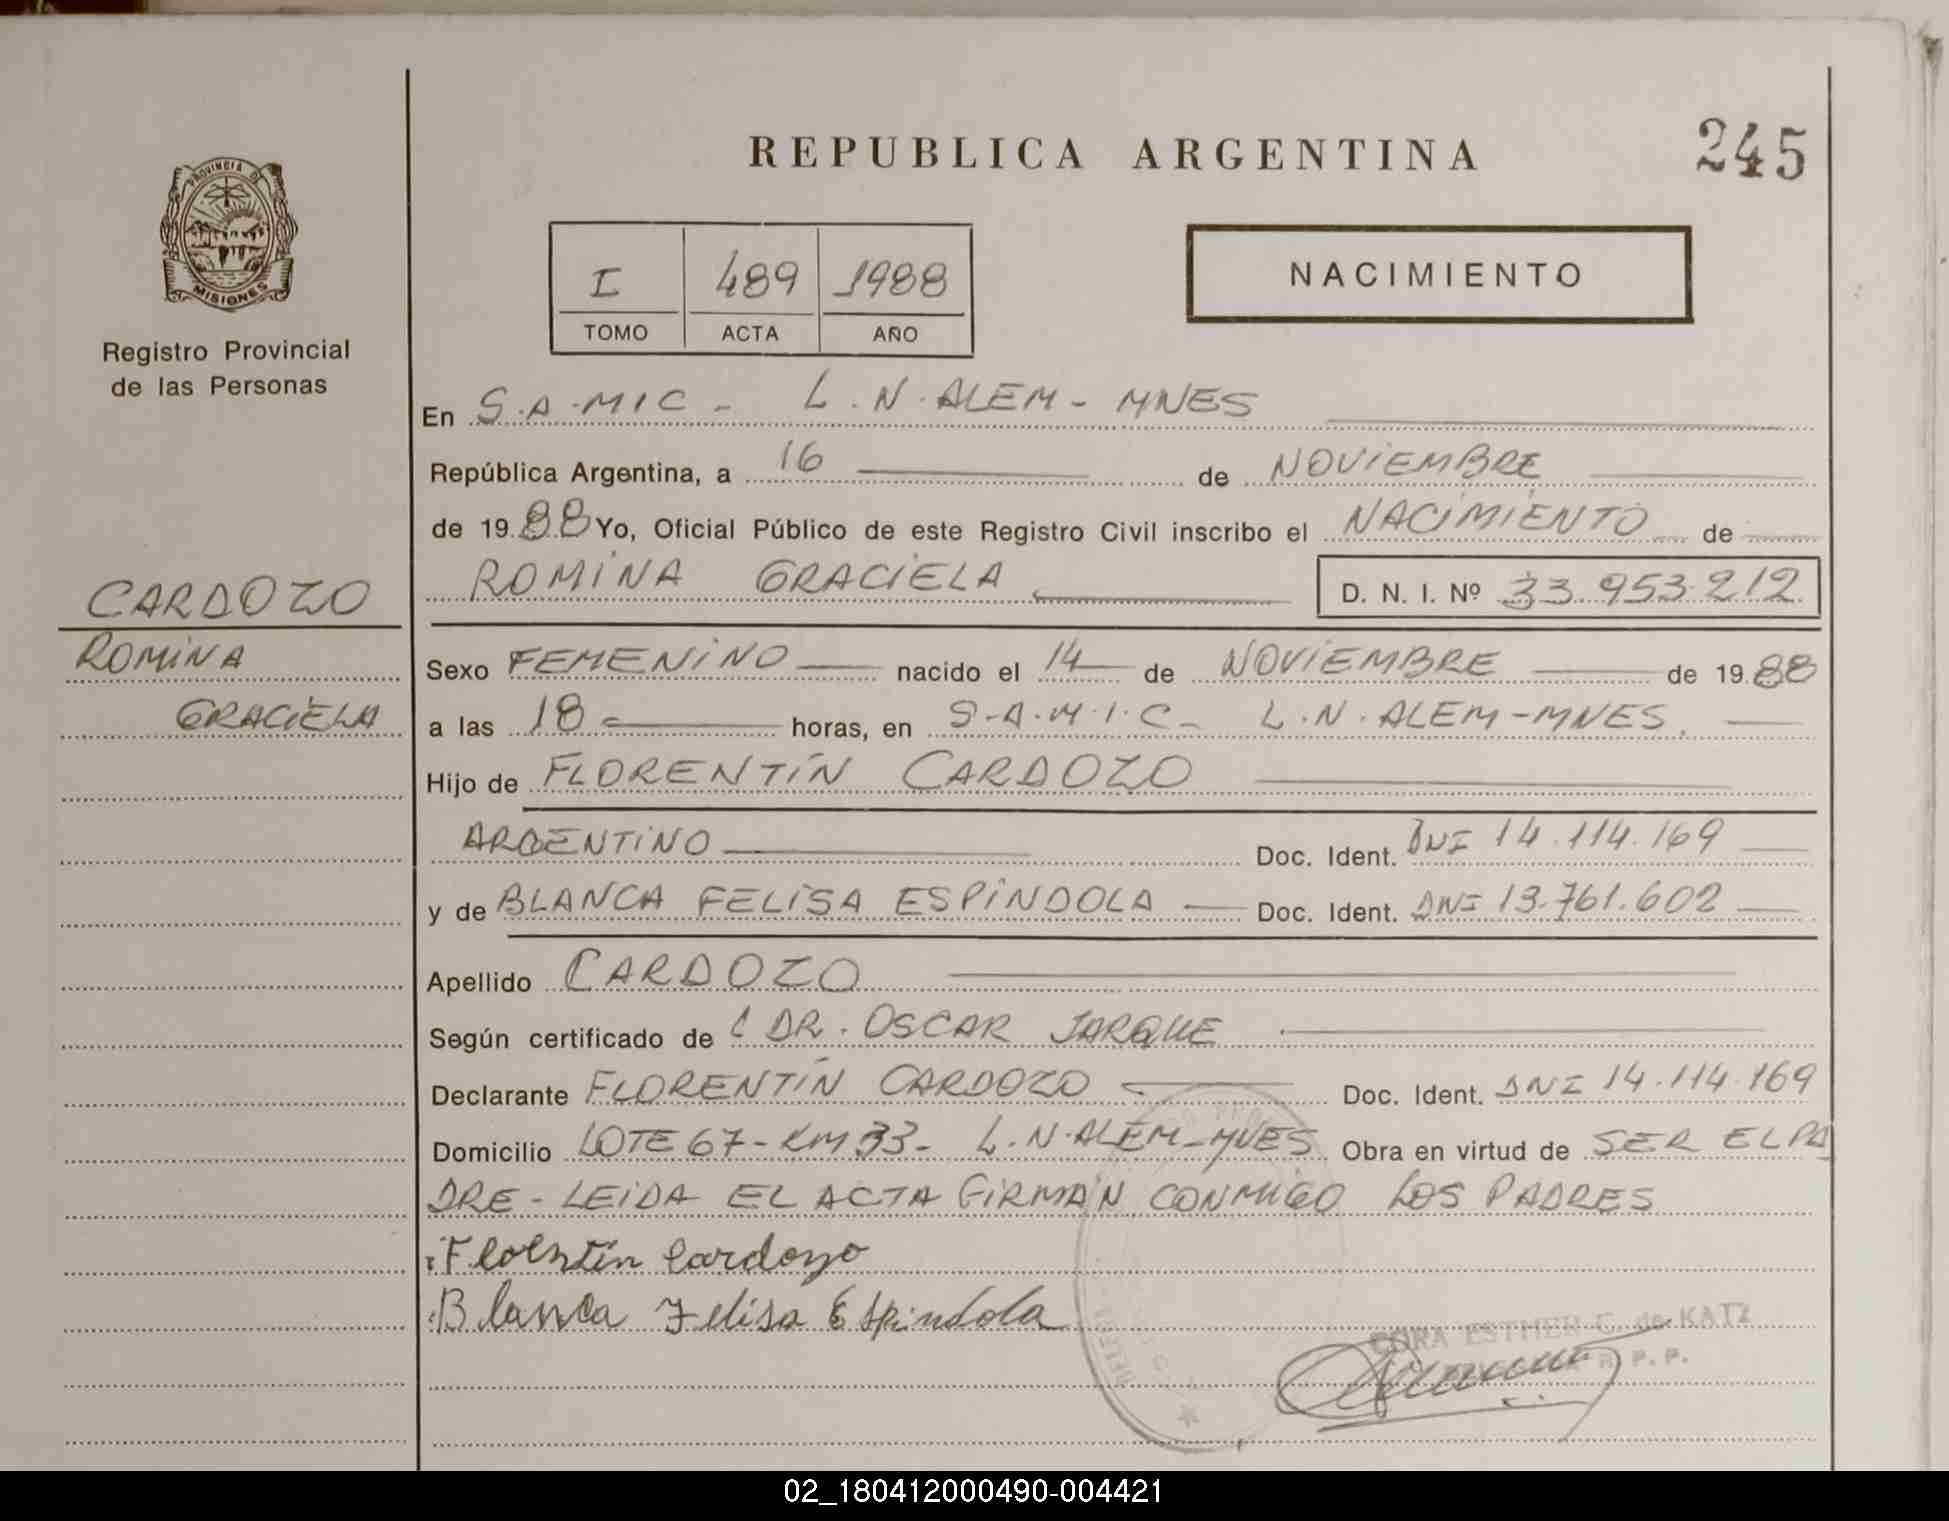 245
REPUBLICA ARGENTINA
PROVINCIA DE
MISIONES
Registro Provincial
de las Personas
I 489 1988
TOMO ACTA AÑO
NACIMIENTO
En S.A.MIC - L.N.ALEM - MNES
República Argentina, a 16 de NOVIEMBRE
de 1988 Yo, Oficial Público de este Registro Civil inscribo el NACIMIENTO de
ROMINA GRACIELA D. N. I. Nº 33.953.212
CARDOZO
ROMINA
GRACIELA
Sexo FEMENINO nacido el 14 de NOVIEMBRE de 1988
a las 18 = horas, en S.A.M.I.C - L.N.ALEM-MNES.
Hijo de FLORENTÍN CARDOZO
ARGENTINO Doc. Ident. DNI 14.114.169
y de BLANCA FELISA ESPINDOLA Doc. Ident. DNI 13.761.602
Apellido CARDOZO
Según certificado de DR. OSCAR JARQUE
Declarante FLORENTÍN CARDOZO Doc. Ident. DNI 14.114.169
Domicilio LOTE 67 - KM 33 - L.N.ALEM-MNES Obra en virtud de SER EL PA
DRE - LEIDA EL ACTA FIRMAN CONMIGO LOS PADRES
Florentín Cardozo
Blanca Felisa Espindola
CORA ESTHER C. de KATZ
R. P. P.
02_180412000490-004421